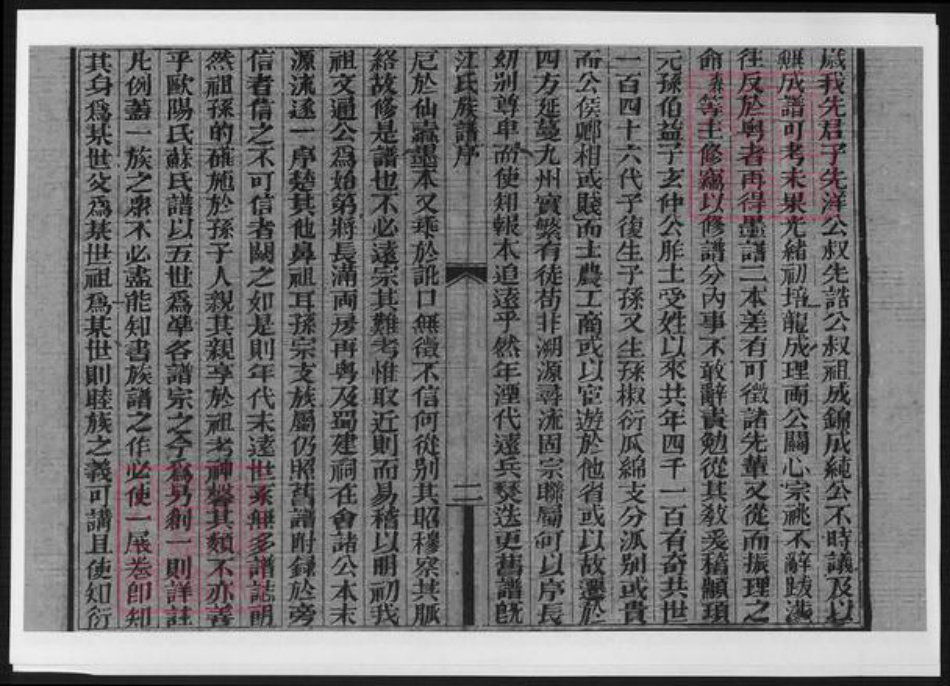 歲我先君子先洋公叔先誥公叔祖成錦成純公不時議及以
無成譜可考未果光緒初培龍成理兩公關心宗祧不辭跋涉
往反於粵者再得墨譜二本差有可徵諸先輩又從而振理之
命森等主修竊以修譜分內事不敢辭責勉從其敎爰稽顓頊
元孫伯益子玄仲公胙土受姓以來共年四千一百有奇共世
一百四十六代子復生子孫又生孫椒衍瓜綿支分派別或貴
而公侯卿相或賤而士農工商或以宦遊於他省或以故遷於
四方延蔓九州實繁有徒苟非溯源尋流固宗聯屬何以序長
幼別尊卑而使知報本追遠乎然年湮代遠兵燹迭更舊譜旣
江氏族譜序
二
厄於仙蠹墨本又乖於訛口無徵不信何從別其昭穆察其脈
絡故修是譜也不必遠宗其難考惟取近則而易稽以明初我
祖文通公爲始第將長滿兩房再粵及蜀建祠在會諸公本末
源流逐一序楚其他鼻祖耳孫宗支族屬仍照舊譜附錄於旁
信者信之不可信者闕之如是則年代未遠世系無多譜誌朗
然祖孫的確施於孫子人親其親享於祖考神馨其類不亦善
乎歐陽氏蘇氏譜以五世爲準各譜宗之今爲另創一則詳註
凡例蓋一族之衆不必盡能知書族譜之作必使一展卷卽知
其身爲某世父爲某世祖爲某世則睦族之義可講且使知衍